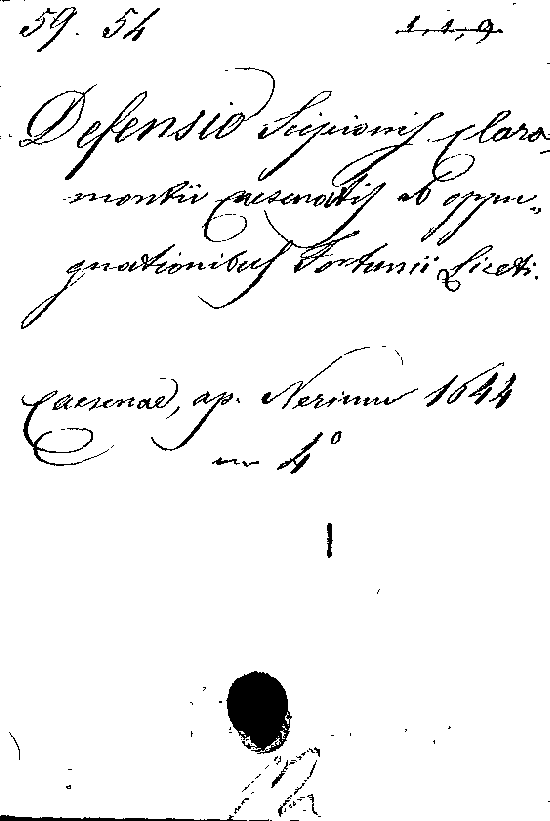 59. 54
1, 1, 9.
Defensio Scipionis Clara-
montii Caesenatis ab oppu-
gnationibus Fortunii Liceti.
Caesenae, ap. Nerium 1644
in 4°